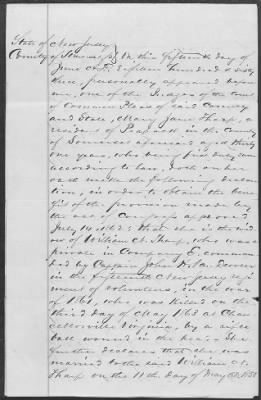 State of New Jersey
County of Somerset } On this fifteenth day of
June A.D. Eighteen hundred & sixty
three personally appeared before
me, one of the Judges of the court
of Common Pleas of said County
and State, Mary Jane Tharp, a
resident of Peapack in the County
of Somerset aforesaid aged thirty
one years, who being first duly sworn
according to law, doth on her
oath make the following declara
tion, in order to obtain the bene
fit of the provision made by
the act of Congress approved
July 14 1862: that she is the wid
ow of William A. Tharp, who was
private in Company E, comman
ded by Captain John
in the Fifteenth New Jersey regi
ment of volunteers, in the war
of 1861, who was killed on the
third day of May 1863 at Chan
cellorsville Virginia, by a rifle
ball wound in the head. She
further declares that she was
married to the said William A.
Tharp on the 11th day of May